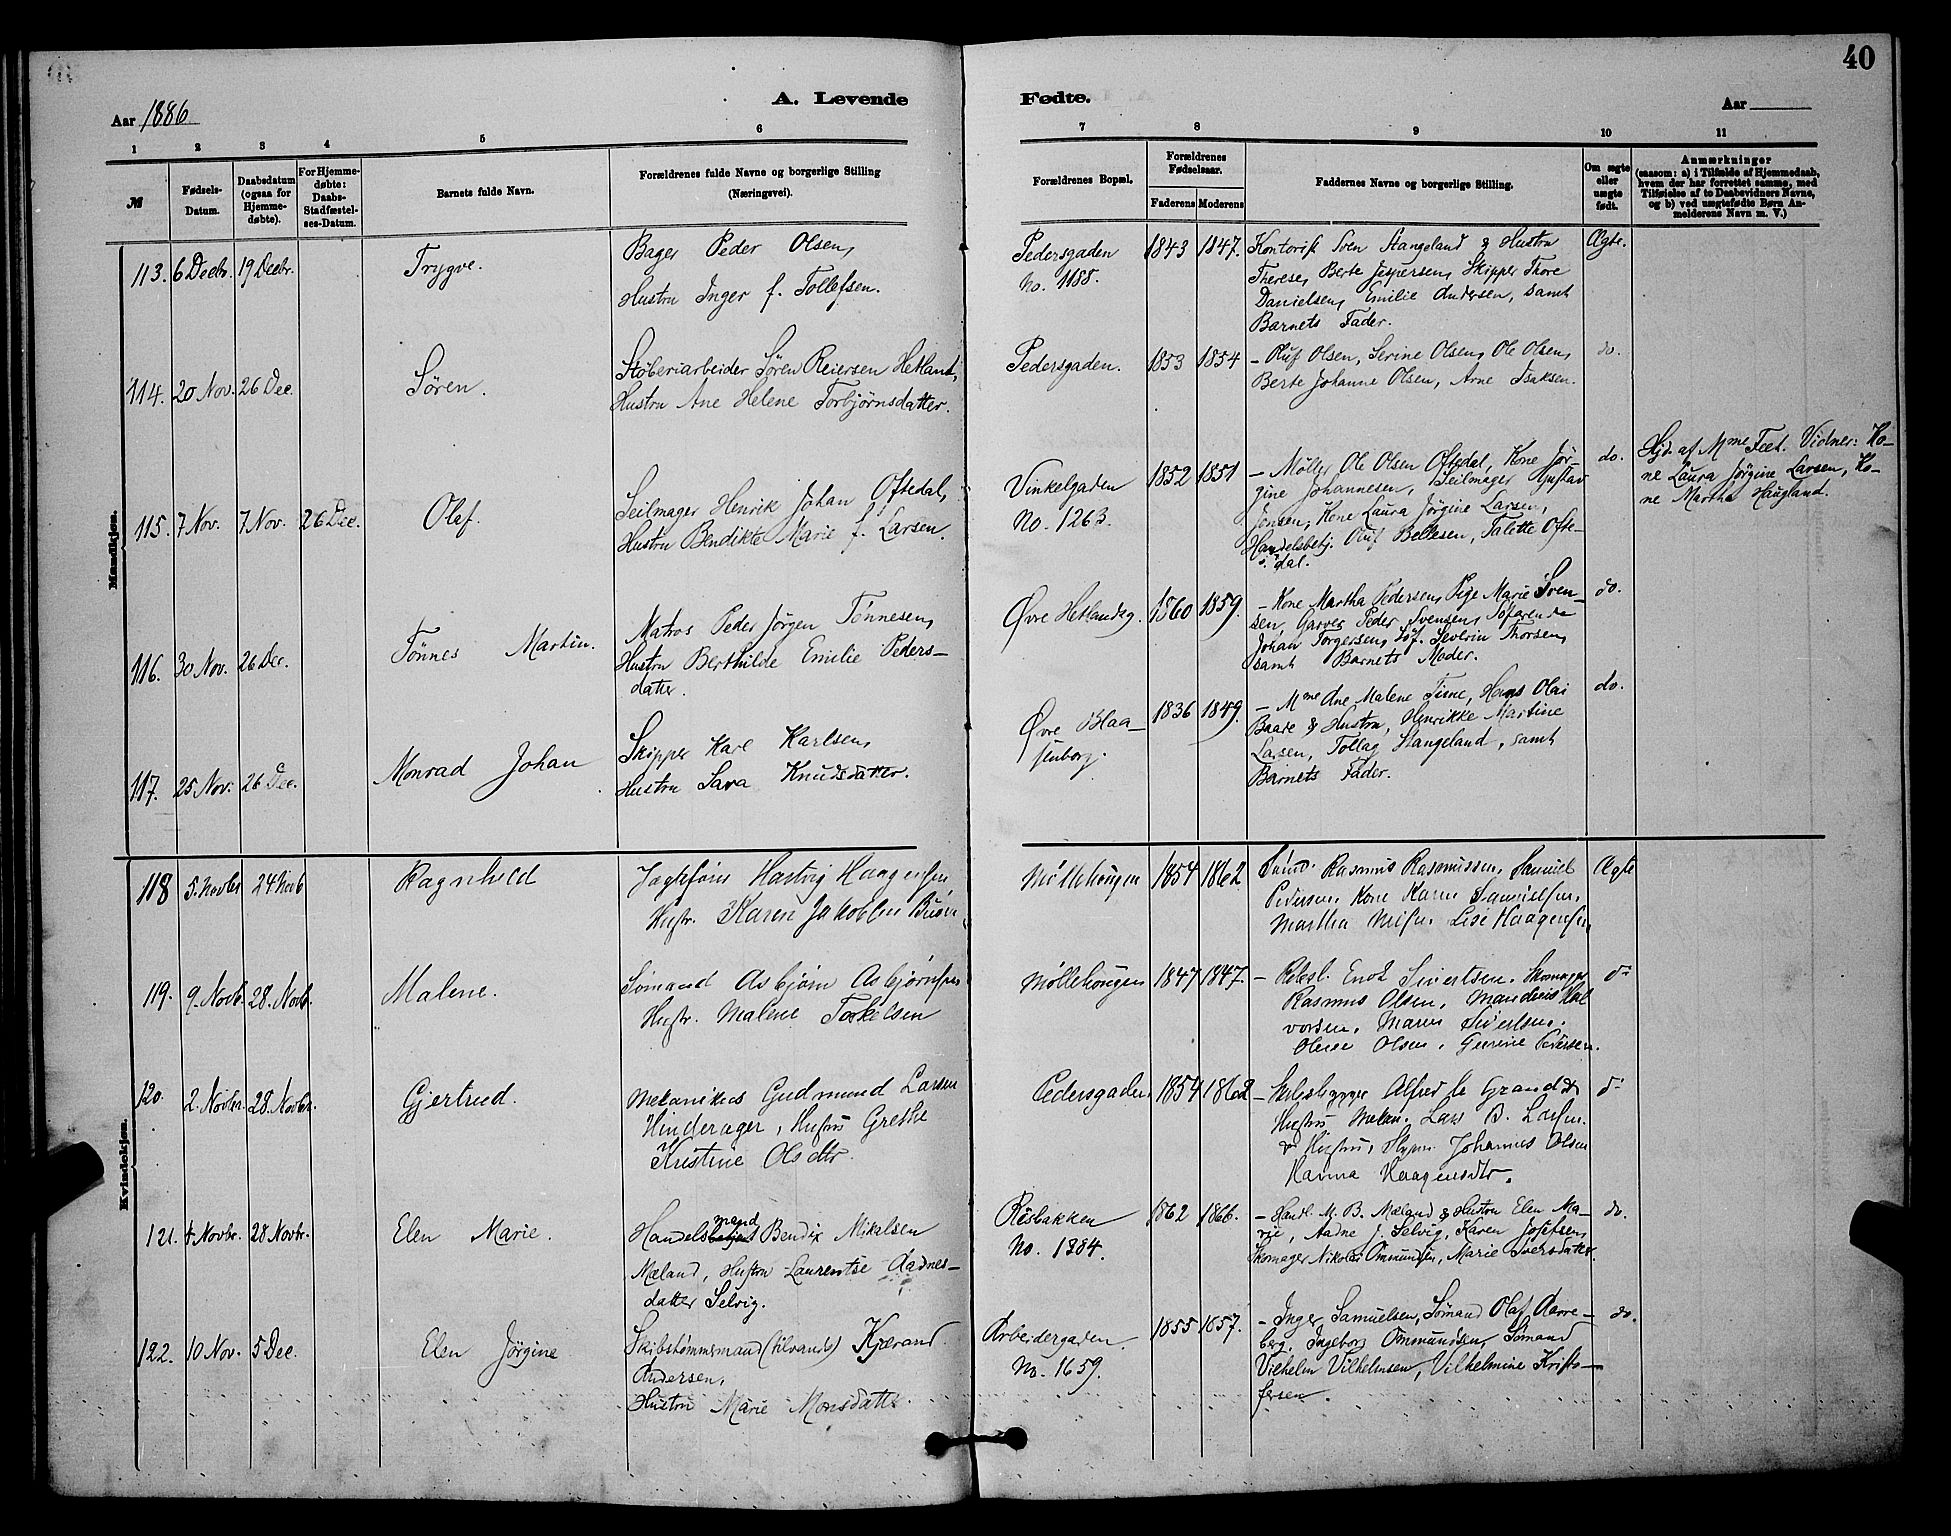 40
A. Levende Fødte.
Aar 1886
Aar
1 2 3 4 5 6 7 8 9 10 11
№
Fødsels-Datum.
Daabsdatum (ogsaa for Hjemme-døbte).
For Hjemme-døbte: Daabs-Stadfæstel-ses-Datum.
Barnets fulde Navn.
Forældrenes fulde Navne og borgerlige Stilling
(Næringsvei).
Forældrenes Bopæl.
Forældrenes Fødselsaar.
Faderens Moderens
Faddernes Navne og borgerlige Stilling.
Om ægte eller uægte født.
Anmærkninger
(saasom: a) i Tilfælde af Hjemmedaab,
hvem der har forrettet samme, med
Tilføielse af to Daabsvidners Navne,
og b) ved uægtefødte Børn An-
melderens Navn m. V.)
Mandkjøn.
113. 6 Decbr. 19 Decbr. Trygve.
Bager Peder Olsen,
Hustru Inger f. Tollefsen.
Pedersgaden
No. 1188.
1843 1847.
Kontorist Sven Stangeland & Hustru
Therese, Berte Jespersen, Skipper Thore
Danielsen, Emilie Andersen, samt
Barnets Fader.
Ægte.
114. 20 Nov. 26 Dec. Søren.
Støberiarbeider Søren Reiersen Hetland,
Hustru Ane Helene Torbjørnsdatter.
Pedersgaden. 1853 1854
– Oluf Olsen, Serine Olsen, Ole Olsen,
Berte Johanne Olsen, Arne Isaksen.
do.
115. 7 Nov. 7 Nov. 26 Dec. Olaf.
Seilmager Henrik Johan Oftedal,
Hustru Bendikte Marie f. Larsen.
Vinkelgaden
No. 1263.
1852 1851
– Møller Ole Olsen Oftedal, Kone Jør-
gine Johannesen, Seilmager Gustav
Jensen, Kone Laura Jørgine Larsen,
Handelsbetj. Oluf Bellesen, Talette Ofte-
dal.
do.
Hjd. af Mme Feet. Vidner: Ko-
ne Laura Jørgine Larsen, Ko-
ne Martha Haugland.
116. 30 Nov. 26 Dec. Tønnes Martin.
Matros Peder Jørgen Tønnesen,
Hustru Berthilde Emilie Peders-
datter.
Øvre Hetlandsg. 1860 1859.
– Kone Martha Pedersen, Pige Marie Sven-
sen, Garver Peder Svensen, Søfarende
Johan Torgersen, Søf. Severin Thorsen,
samt Barnets Moder.
do.
117. 25 Nov. 26 Dec. Monrad Johan
Skipper Karl Karlsen,
Hustru Sara Knudsdatter.
Øvre Blaa-
senborg.
1836 1849.
– Mme Ane Malene Tisne, Hans Olai
Baare & Hustru, Henrikke Martine
Larsen, Tollag Stangeland, samt
Barnets Fader.
do.
Kvindekjøn.
118 5. Novbr 24 Novb Ragnhild
Hartvig Haagensen
Hustr. Karen Jakobine
Møllehougen 1854 1862
Rasmus Rasmussen, Samuel
Pedersen, Kone Karen Samuelsen,
Martha Lise Haagensen,
Ægte
119. 9. Novb. 28. Novb. Malene.
Sømand Asbjørn Asbjørnsen
Hustr. Malene Torkelsen
Møllehougen 1847 1847.
– Rebsl. Enok Sivertsen. Skomager
Rasmus Olsen, Mandius Hal
vorsen, Maren Sivertsen.
Olene Olsen, Gurine Pedersen.
d–
120. 2. Novbr. 28. Novbr. Gjertrud.
Mekanikus Gudmund Larsen
Hinderager, Hustru Grethe
Kristine Olsdtr.
Pedersgaden 1854 1862
– Skibsbygger Alfred le Grand &
Hustru Mekan. Lars B. Larsen.
& Hustru, Johannes Olsen
Hanna Haagensdtr.
d–
121. 4 Novbr. 28 Novbr. Elen Marie.
Handelsmand Bendix Mikalsen
Mæland, Hustru Laurentse Aadnes-
datter Selvig.
Risbakken
No. 1384.
1862 1866.
– Handl. M. B. Mæland & Hustru Elen Ma-
rie, Aadne J. Selvig, Karen Josefsen,
Skomager Nikolai Ommundsen, Marie Iversdatter.
do.
122. 10 Nov. 5 Dec. Elen Jørgine
Skibstømmermand (tilvands) Kjærand
Andersen,
Hustru Marie Monsdatter.
Arbeidergaden.
No. 1659.
1855 1857.
– Inger Samuelsen, Sømand Olaf Aarre-
berg, Ingeborg Ommundsen, Sømand
Vilhelm Vilhelmsen, Vilhelmine Kristo-
fersen.
do.